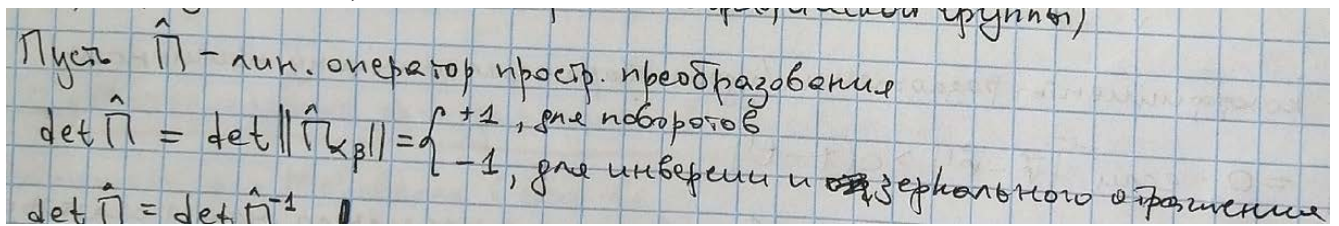 группы)
Пусть Π̂ - лин. оператор простр. преобразования
det Π̂ = det ||Π̂αβ|| = { +1, для поворотов
-1, для инверсии и зеркального отражения
det Π̂ = det Π̂⁻¹